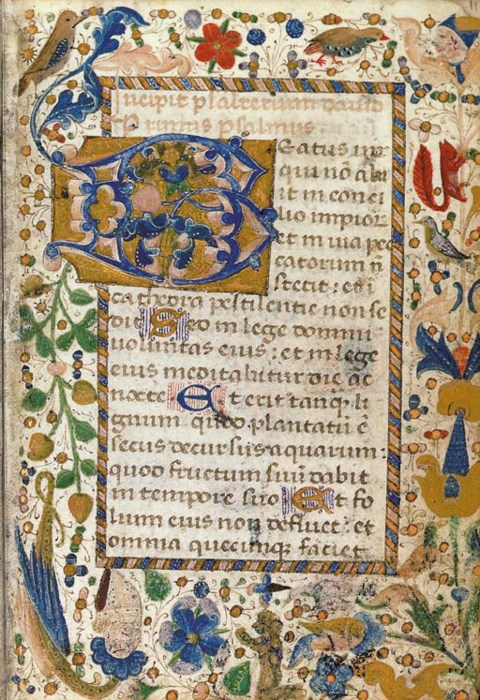 Incipit psalterium dauid
Primus psalmus
Beatus uir
qui nō abi
it in conci
lio impior
et in uia pec
catorum n̄
stetit: et ī
cathedra pestilentie non se
dit Sed in lege domini
uoluntas eius: et in lege
eius meditabitur die ac
nocte Et erit tanq̄ li
gnum quod plantatū ē
secus decursus aquarum:
quod fructum suū dabit
in tempore suo Et fo
lium eius non defluet: et
omnia quecunq; faciet